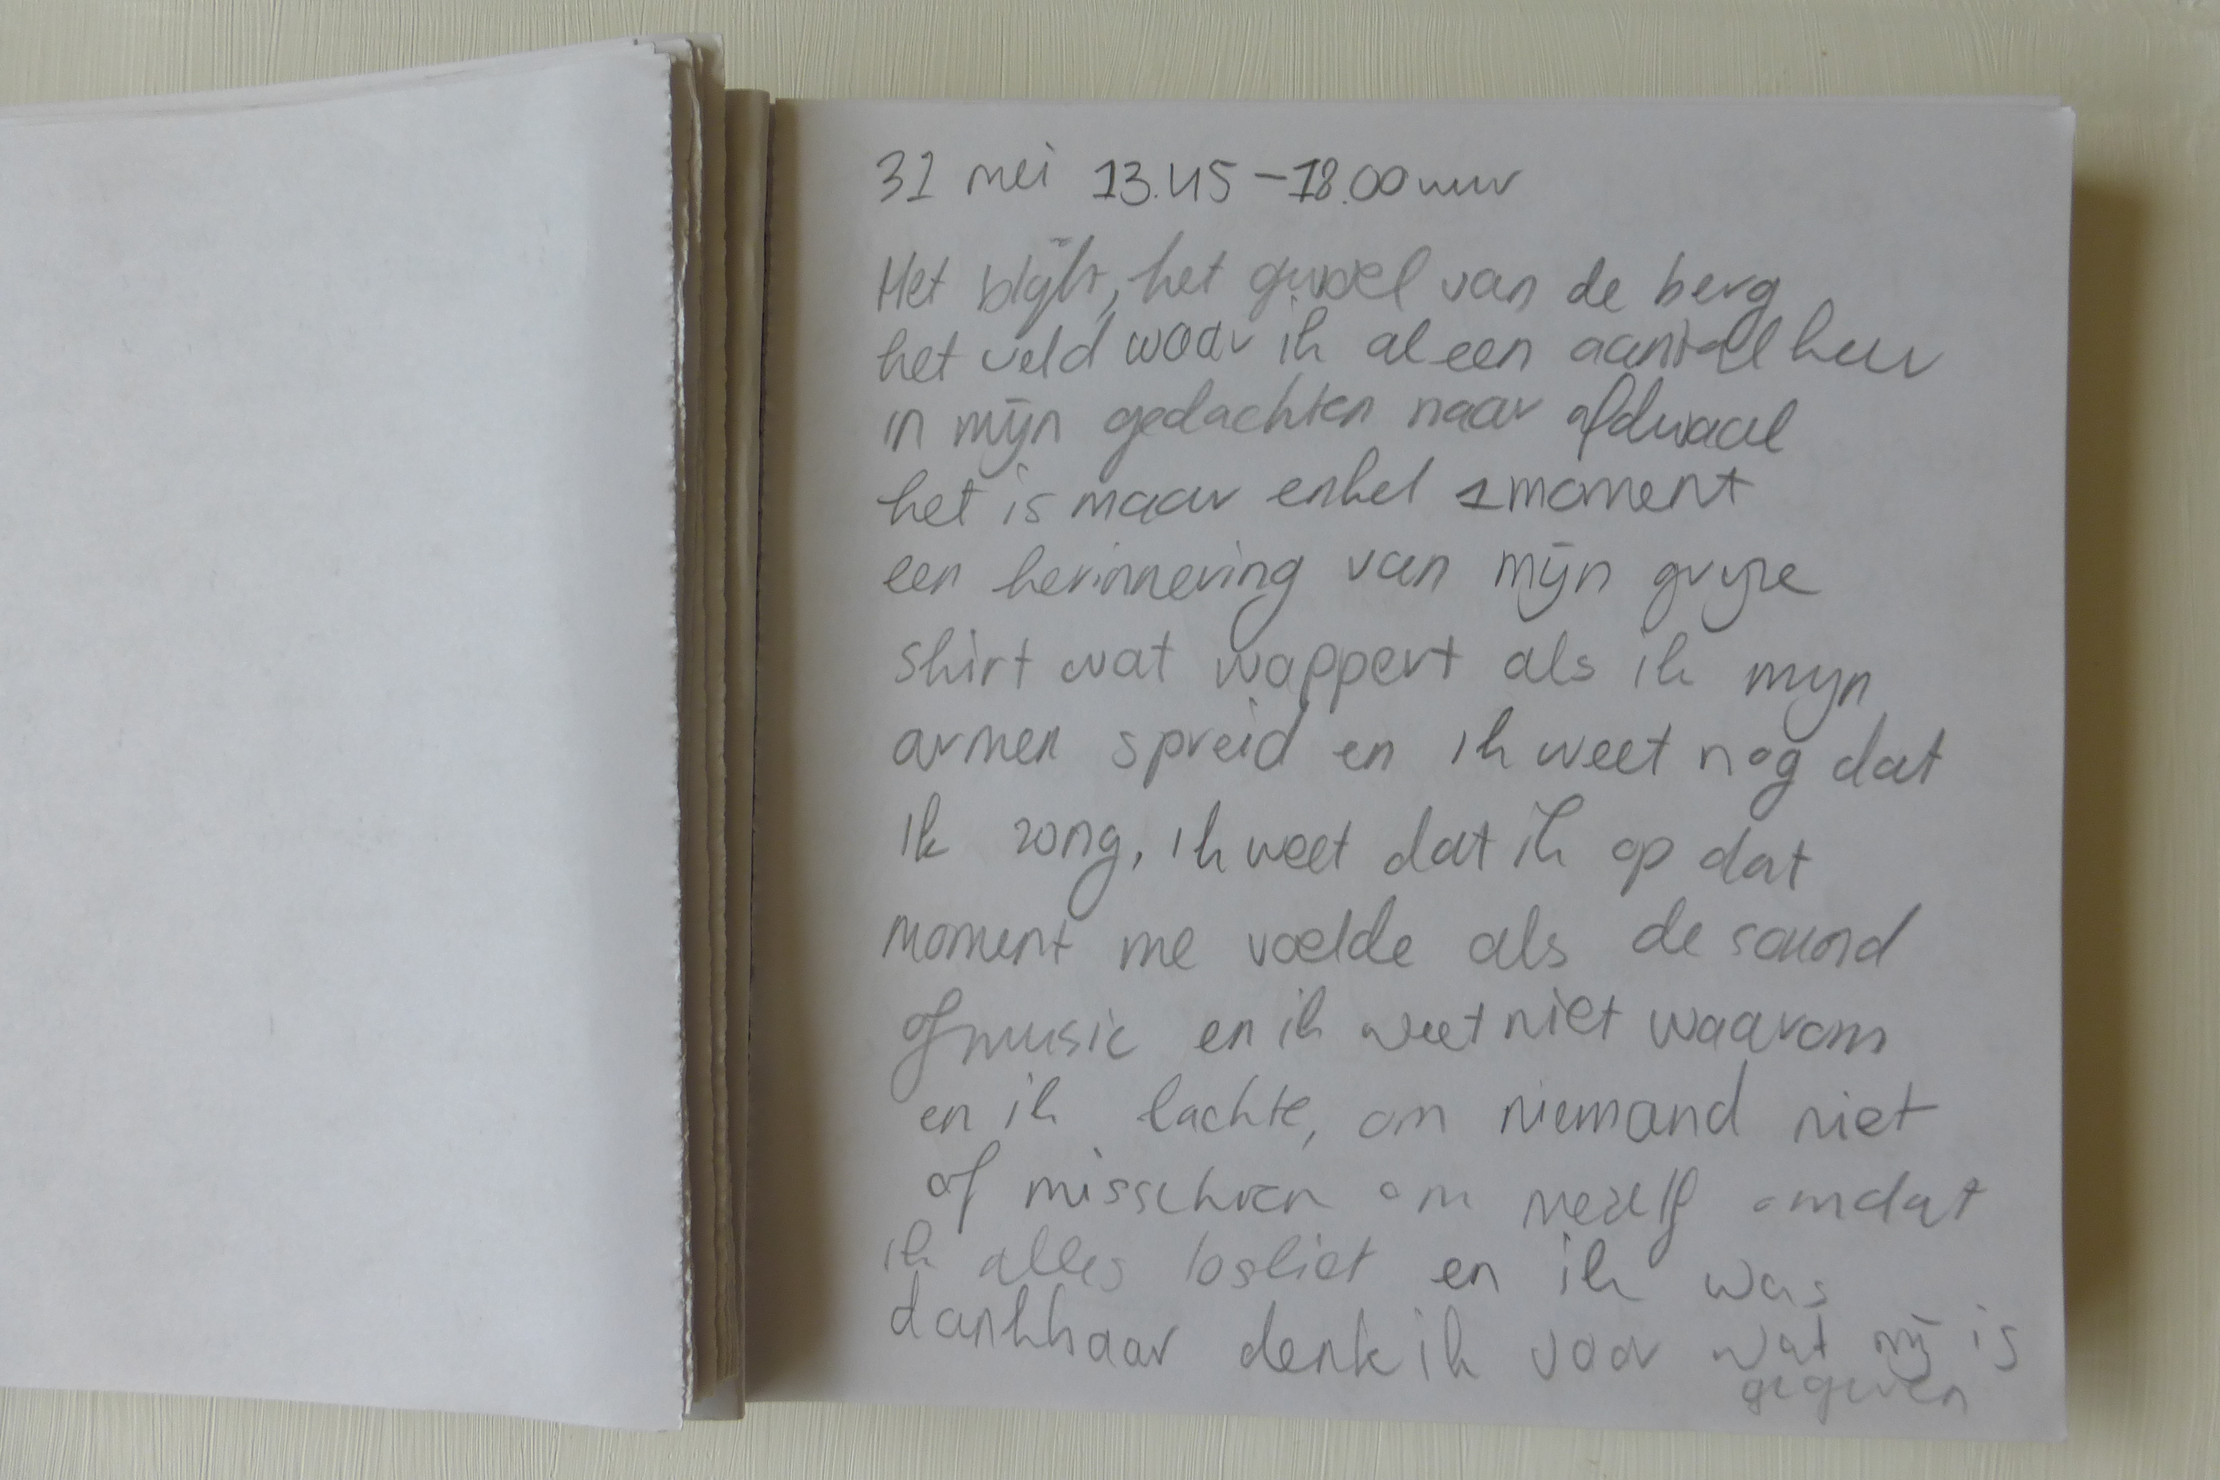 31 mei 13.45 - 18.00 uur
Het blijft, het gevoel van de berg
het veld waar ik al een aantal keer
in mijn gedachten naar afdwaal
het is maar enkel 1 moment
een herinnering van mijn grijze
shirt wat wappert als ik mijn
armen spreid en ik weet nog dat
ik zong, ik weet dat ik op dat
moment me voelde als de sound
of music en ik weet niet waarom
en ik lachte, om niemand niet
of misschien om mezelf omdat
ik alles losliet en ik was
dankbaar denk ik voor wat mij is
gegeven